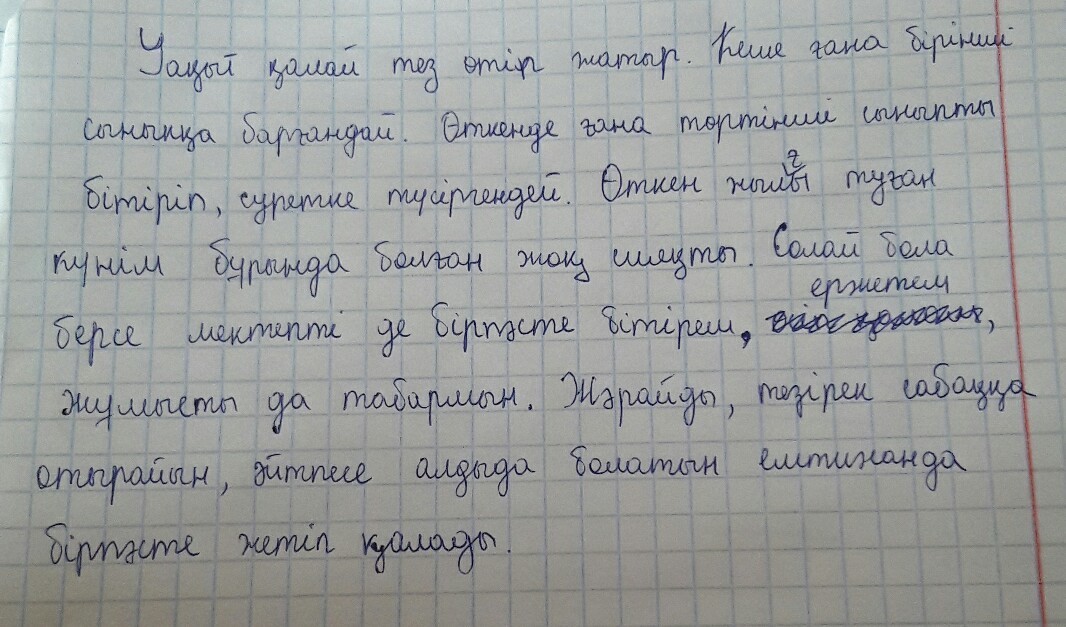 Уақыт қалай тез өтіп жатыр. Кеше ғана бірінші
сыныпқа барғандай. Өткенде ғана төртінші сыныпты
бітіріп, суретке түсіргендей. Өткен жылғы туған
күнім бұрында болған жоқ сияқты. Солай бола
ержетем
берсе мектепті де бірпәсте бітірем, ,
жұмысты да табармын. Жәрайды, тезірек сабаққа
отырайын, әйтпесе алдыда болатын емтиханда
бірпәсте жетіп қалады.